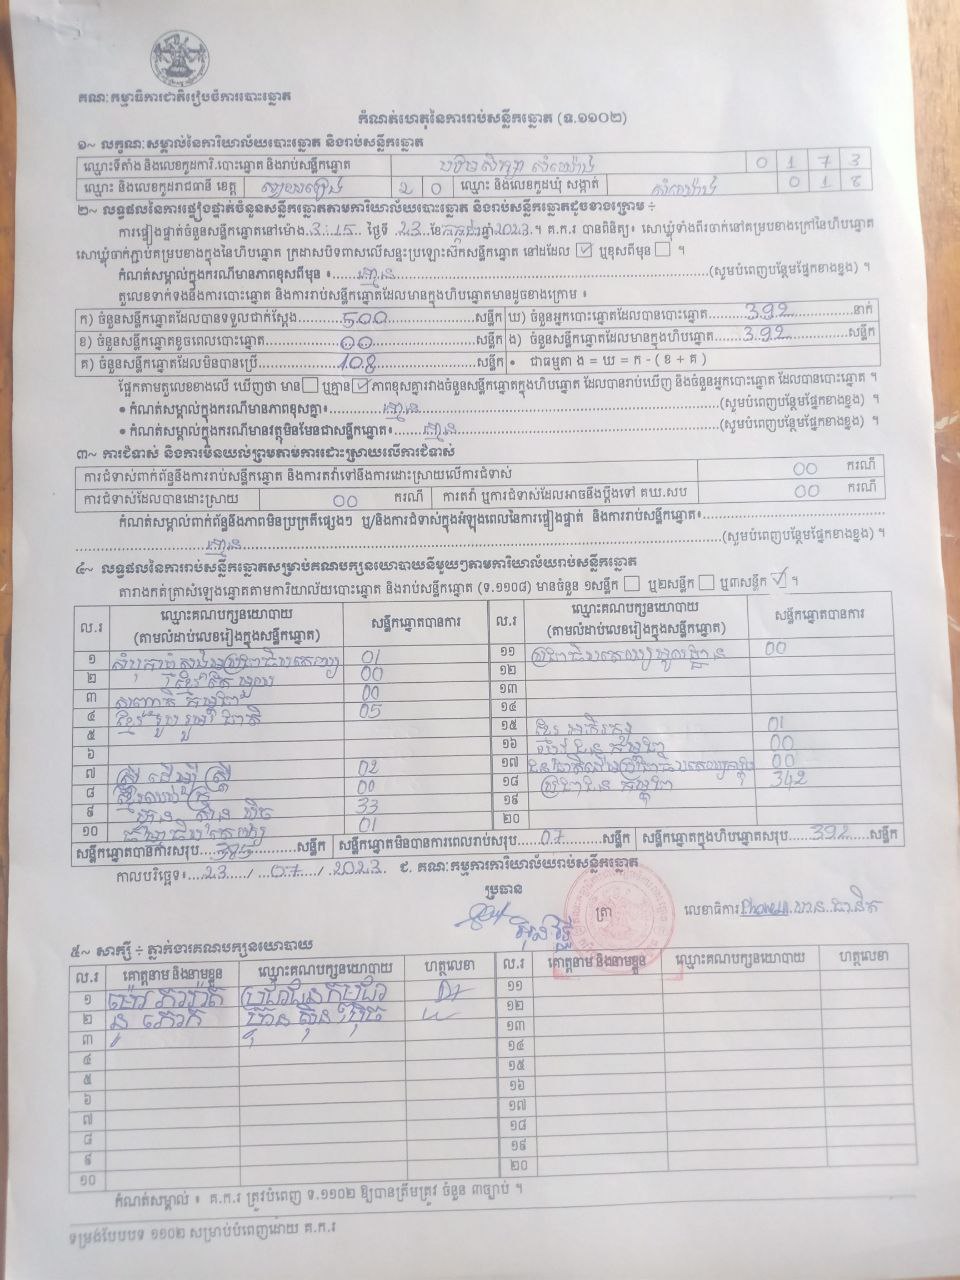 គណៈកម្មាធិការជាតិរៀបចំការបោះឆ្នោត
កំណត់ហេតុនៃការរាប់សន្លឹកឆ្នោត (ទ.១១០២)
១~ លក្ខណៈសម្គាល់នៃការិយាល័យបោះឆ្នោត និងរាប់សន្លឹកឆ្នោត
ឈ្មោះទីតាំង និងលេខកូដការិ.បោះឆ្នោត និងរាប់សន្លឹកឆ្នោត 0 1 7 3
ឈ្មោះ និងលេខកូដរាជធានី ខេត្ត 2 0 ឈ្មោះ និងលេខកូដឃុំ សង្កាត់ 0 1 8
២~ លទ្ធផលនៃការផ្ទៀងផ្ទាត់ចំនួនសន្លឹកឆ្នោតតាមការិយាល័យបោះឆ្នោត និងរាប់សន្លឹកឆ្នោតដូចខាងក្រោម ÷
ការផ្ទៀងផ្ទាត់ចំនួនសន្លឹកឆ្នោតនៅម៉ោង 3:15 ថ្ងៃទី 23 ខែកក្កដាឆ្នាំ 2023 ។ គ.ក.រ បានពិនិត្យ៖ សោឃ្លុំទាំងពីរចាក់នៅគម្របខាងក្រៅនៃហិបឆ្នោត
សោឃ្លុំចាក់ភ្ជាប់គម្របខាងក្នុងនៃហិបឆ្នោត ក្រដាសបិទពាសលើសន្ទះប្រឡោះស៊កសន្លឹកឆ្នោត នៅដដែល ☑ ឬខុសពីមុន ☐ ។
កំណត់សម្គាល់ក្នុងករណីមានភាពខុសពីមុន ៖ គ្មាន (សូមបំពេញបន្ថែមផ្នែកខាងខ្នង) ។
តួលេខទាក់ទងនឹងការបោះឆ្នោត និងការរាប់សន្លឹកឆ្នោតដែលមានក្នុងហិបឆ្នោតមានដូចខាងក្រោម ៖
ក) ចំនួនសន្លឹកឆ្នោតដែលបានទទួលជាក់ស្តែង 500 សន្លឹក ឃ) ចំនួនអ្នកបោះឆ្នោតដែលបានបោះឆ្នោត 392 នាក់
ខ) ចំនួនសន្លឹកឆ្នោតខូចពេលបោះឆ្នោត 00 សន្លឹក ង) ចំនួនសន្លឹកឆ្នោតដែលមានក្នុងហិបឆ្នោត 392 សន្លឹក
គ) ចំនួនសន្លឹកឆ្នោតដែលមិនបានប្រើ 108 សន្លឹក • ជាធម្មតា ង = ឃ = ក - ( ខ + គ )
ផ្អែកតាមតួលេខខាងលើ ឃើញថា មាន ☐ ឬគ្មាន ☑ ភាពខុសគ្នារវាងចំនួនសន្លឹកឆ្នោតក្នុងហិបឆ្នោត ដែលបានរាប់ឃើញ និងចំនួនអ្នកបោះឆ្នោត ដែលបានបោះឆ្នោត ។
• កំណត់សម្គាល់ក្នុងករណីមានភាពខុសគ្នា៖ គ្មាន (សូមបំពេញបន្ថែមផ្នែកខាងខ្នង) ។
• កំណត់សម្គាល់ក្នុងករណីមានវត្ថុមិនមែនជាសន្លឹកឆ្នោត៖ គ្មាន (សូមបំពេញបន្ថែមផ្នែកខាងខ្នង) ។
៣~ ការជំទាស់ និងការមិនយល់ព្រមតាមការដោះស្រាយលើការជំទាស់
ការជំទាស់ពាក់ព័ន្ធនឹងការរាប់សន្លឹកឆ្នោត និងការតវ៉ាទៅនឹងការដោះស្រាយលើការជំទាស់ 00 ករណី
ការជំទាស់ដែលបានដោះស្រាយ 00 ករណី ការតវ៉ា ឬការជំទាស់ដែលអាចនឹងប្តឹងទៅ គឃ.សប 00 ករណី
កំណត់សម្គាល់ពាក់ព័ន្ធនឹងភាពមិនប្រក្រតីផ្សេងៗ ឬ/និងការជំទាស់ក្នុងអំឡុងពេលនៃការផ្ទៀងផ្ទាត់ និងការរាប់សន្លឹកឆ្នោត៖
គ្មាន (សូមបំពេញបន្ថែមផ្នែកខាងខ្នង) ។
៤~ លទ្ធផលនៃការរាប់សន្លឹកឆ្នោតសម្រាប់គណបក្សនយោបាយនីមួយៗតាមការិយាល័យរាប់សន្លឹកឆ្នោត
តារាងកត់ត្រាសំឡេងឆ្នោតតាមការិយាល័យបោះឆ្នោត និងរាប់សន្លឹកឆ្នោត (ទ.១១០៨) មានចំនួន ១សន្លឹក ☐ ឬ២សន្លឹក ☐ ឬ៣សន្លឹក ☑ ។
ល.រ ឈ្មោះគណបក្សនយោបាយ (តាមលំដាប់លេខរៀងក្នុងសន្លឹកឆ្នោត) សន្លឹកឆ្នោតបានការ ល.រ ឈ្មោះគណបក្សនយោបាយ (តាមលំដាប់លេខរៀងក្នុងសន្លឹកឆ្នោត) សន្លឹកឆ្នោតបានការ
១ 01 ១១ 00
២ 00 ១២
៣ 00 ១៣
៤ ខ្មែររួបរួមជាតិ 05 ១៤
៥ ១៥ 01
៦ ១៦ 00
៧ ស្ត្រីដើម្បីស្ត្រី 02 ១៧ 00
៨ 00 ១៨ ប្រជាជនកម្ពុជា 342
៩ ហ៊្វុនស៊ិនប៉ិច 33 ១៩
១០ 01 ២០
សន្លឹកឆ្នោតបានការសរុប សន្លឹក សន្លឹកឆ្នោតមិនបានការពេលរាប់សរុប 07 សន្លឹក សន្លឹកឆ្នោតក្នុងហិបឆ្នោតសរុប 392 សន្លឹក
កាលបរិច្ឆេទ៖ 23 / 07 / 2023 ជ. គណៈកម្មការការិយាល័យរាប់សន្លឹកឆ្នោត
ប្រធាន
ត្រា លេខាធិការ
៥~ សាក្សី ÷ ភ្នាក់ងារគណបក្សនយោបាយ
ល.រ គោត្តនាម និងនាមខ្លួន ឈ្មោះគណបក្សនយោបាយ ហត្ថលេខា ល.រ គោត្តនាម និងនាមខ្លួន ឈ្មោះគណបក្សនយោបាយ ហត្ថលេខា
១ ប្រជាជនកម្ពុជា ១១
២ ហ៊្វុនស៊ិនប៉ិច ១២
៣ ១៣
៤ ១៤
៥ ១៥
៦ ១៦
៧ ១៧
៨ ១៨
៩ ១៩
១០ ២០
កំណត់សម្គាល់ ៖ គ.ក.រ ត្រូវបំពេញ ទ.១១០២ ឱ្យបានត្រឹមត្រូវ ចំនួន ៣ច្បាប់ ។
ទម្រង់បែបបទ ១១០២ សម្រាប់បំពេញដោយ គ.ក.រ